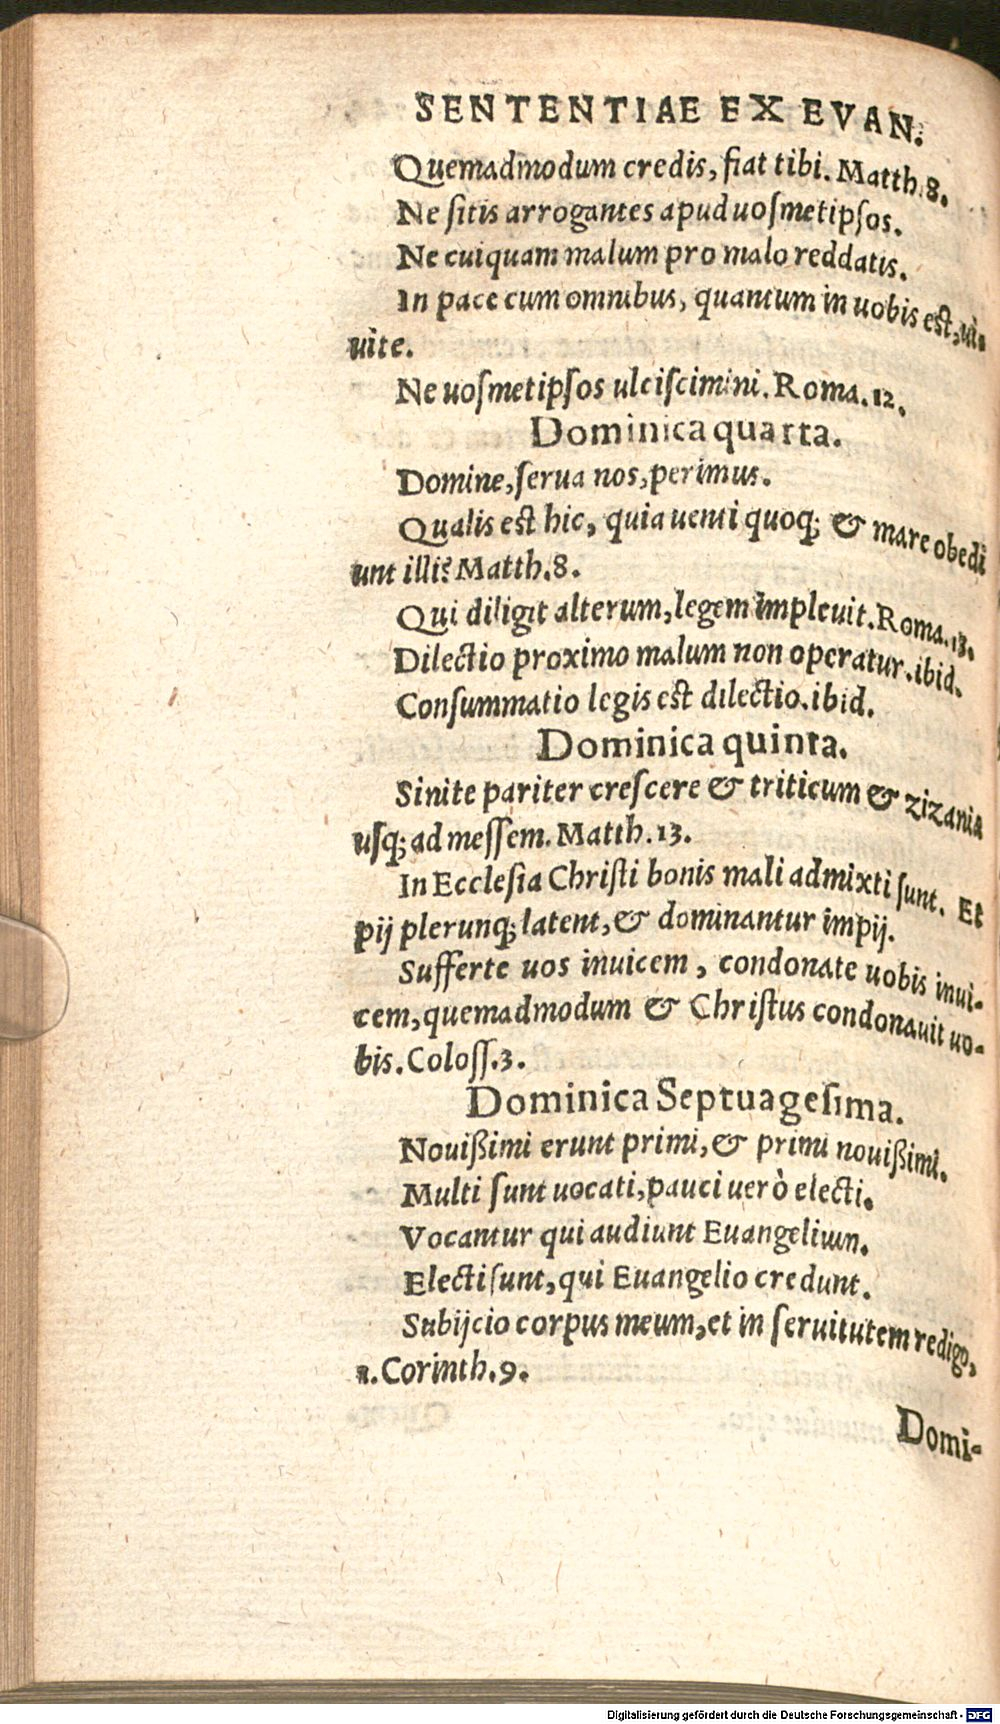 SENTENTIAE EX EVAN.
Quemadmodum credis, fiat tibi. Matth. 8.
Ne ſitis arrogantes apud uoſmetipſos.
Ne cuiquam malum pro malo reddatis.
In pace cum omnibus, quantum in uobis est, ui-
uite.
Ne uoſmetipſos ulciſcimini. Roma. 12.
Dominica quarta.
Domine, ſerua nos, perimus.
Qualis est hic, quia uenti quoq; & mare obedi
unt illi? Matth. 8.
Qui diligit alterum, legem impleuit. Roma. 13.
Dilectio proximo malum non operatur. ibid.
Conſummatio legis est dilectio. ibid.
Dominica quinta.
Sinite pariter creſcere & triticum & zizania
uſq; ad meſſem. Matth. 13.
In Eccleſia Chriſti bonis mali admixti ſunt. Et
pij plerunq; latent, & dominantur impij.
Sufferte uos inuicem, condonate uobis inui-
cem, quemadmodum & Chriſtus condonauit uo-
bis. Coloſſ. 3.
Dominica Septuageſima.
Nouißimi erunt primi, & primi nouißimi.
Multi ſunt uocati, pauci uerò electi.
Vocantur qui audiunt Euangelium.
Electi ſunt, qui Euangelio credunt.
Subijcio corpus meum, et in ſeruitutem redigo,
1. Corinth. 9.
Domi-
Digitalisierung gefördert durch die Deutsche Forschungsgemeinschaft - DFG